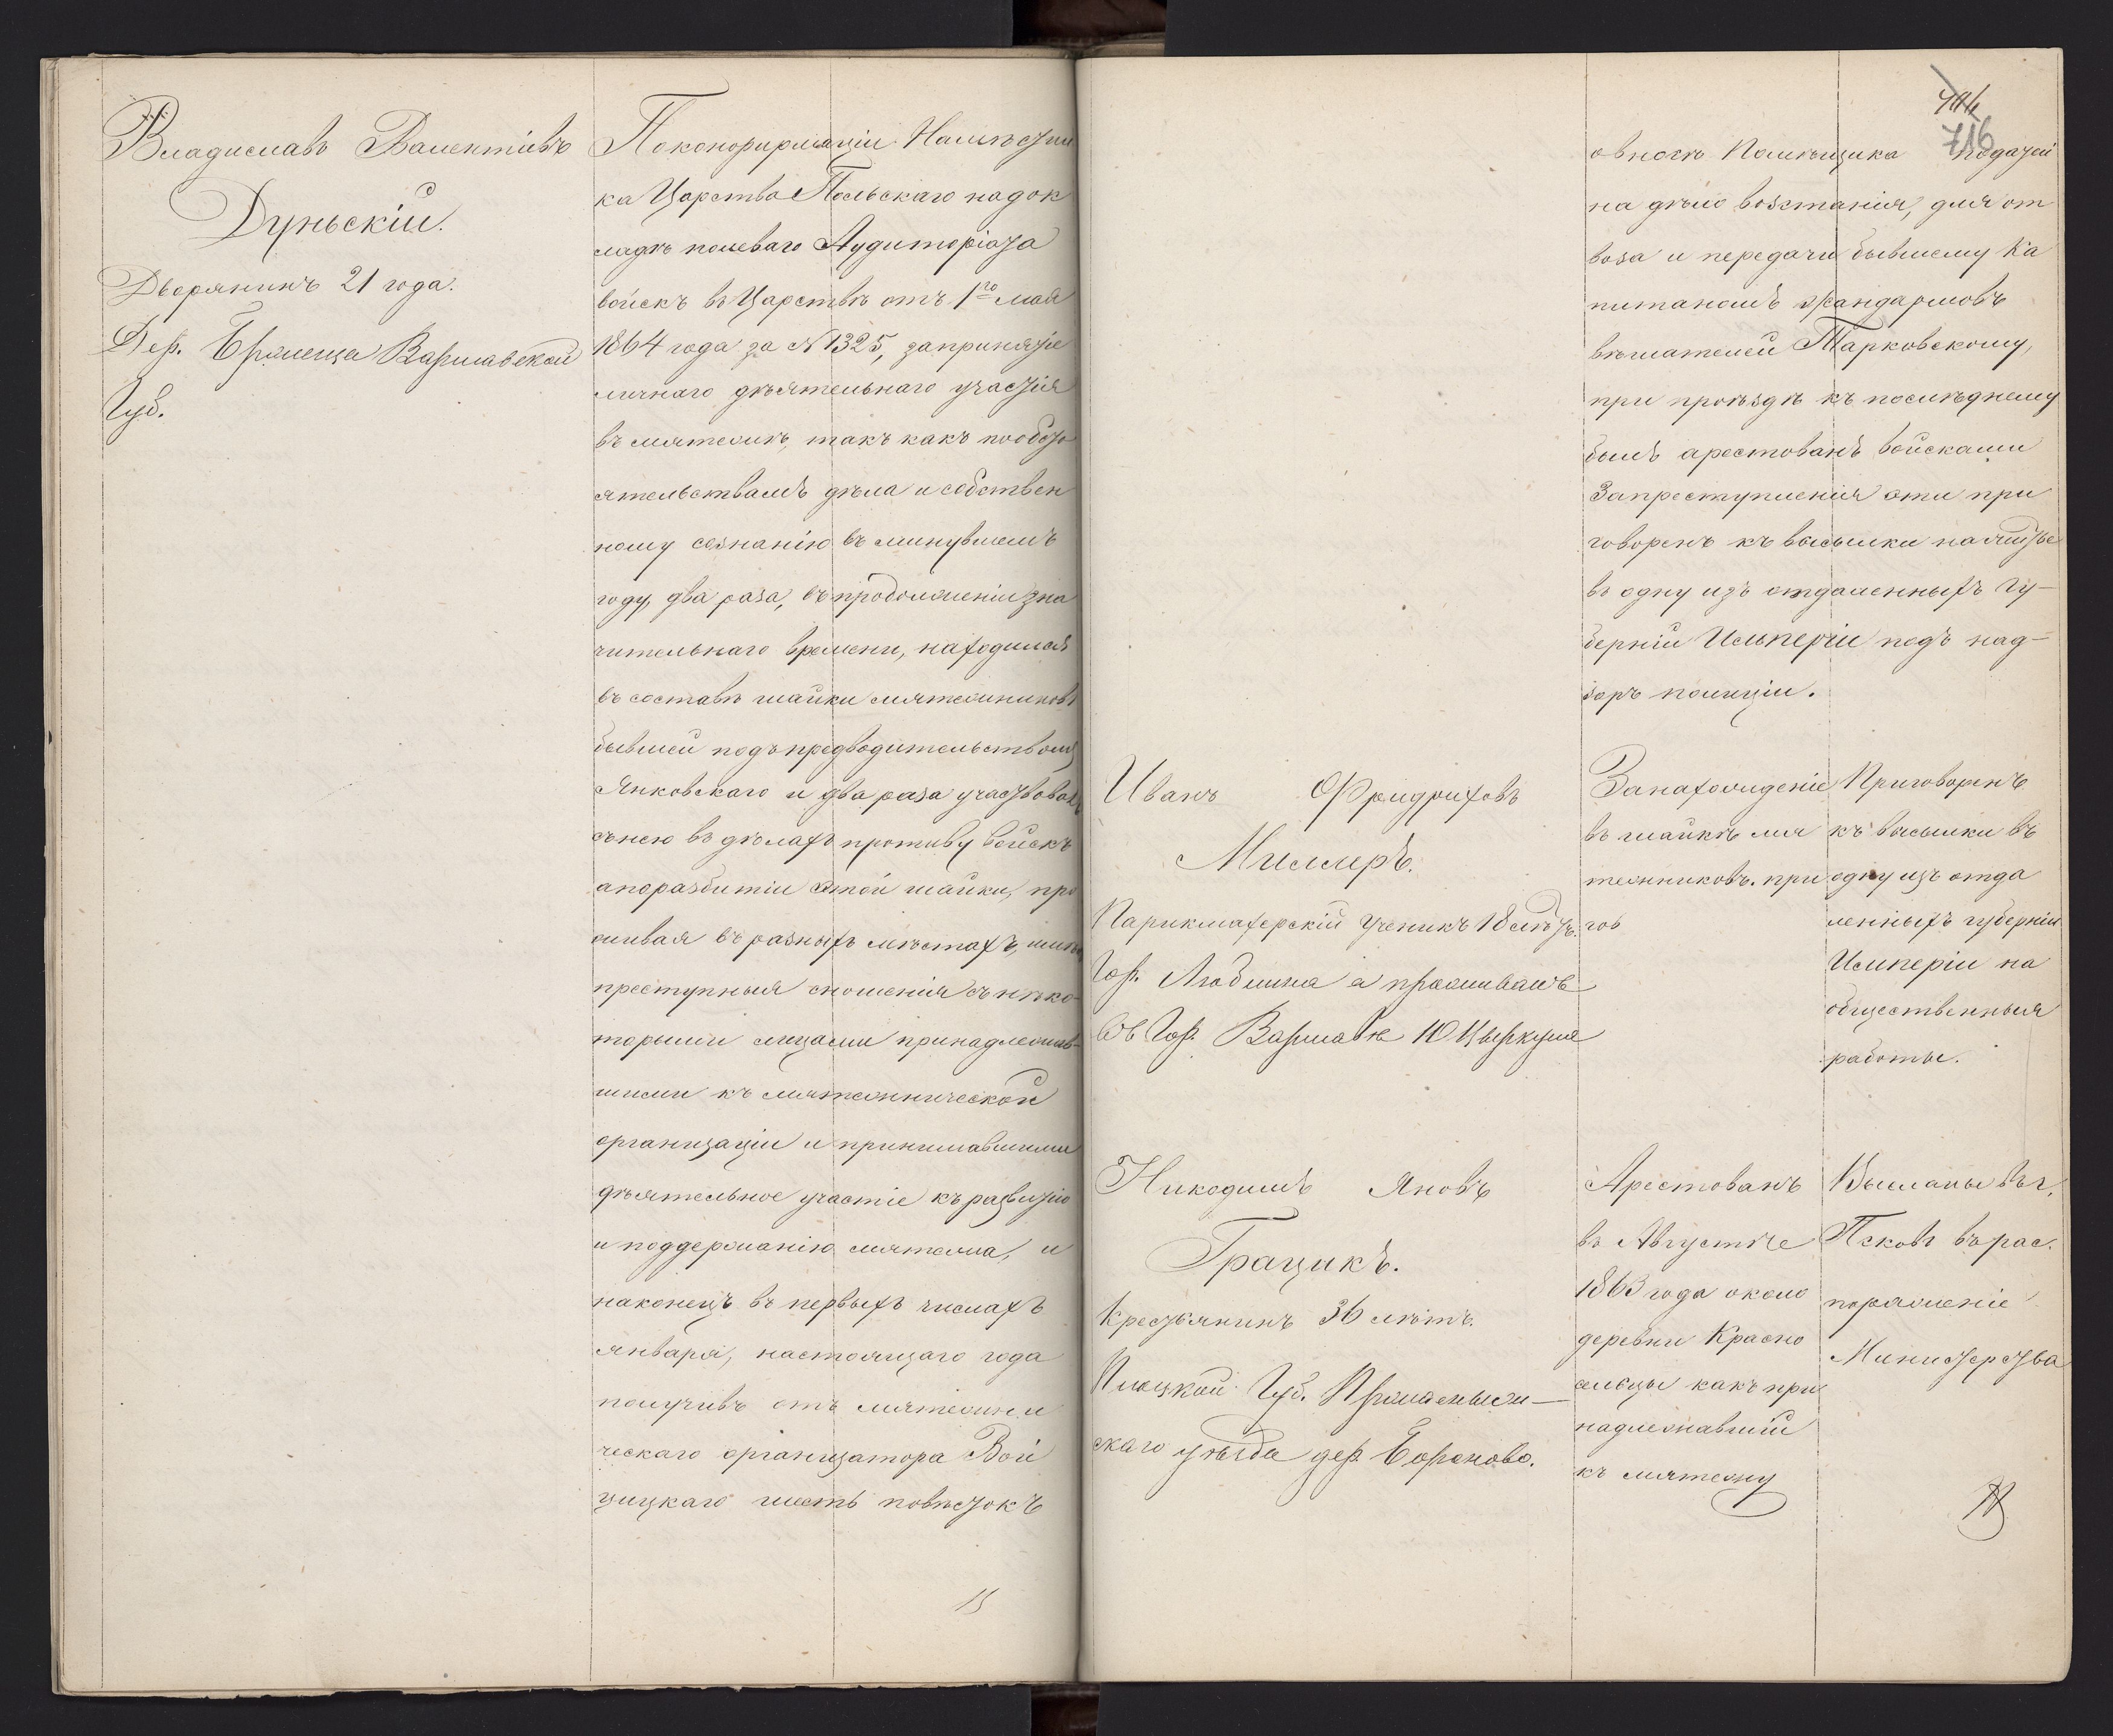 Владиславъ Валентіевъ
Дуньскій.
Дворянинъ 21 года.
Дер. Варшавской
Губ.
По конфирмаціи Намѣстни
ка Царства Польскаго на док
ладѣ полеваго Аудиторіата
войскъ въ Царствѣ отъ 1го мая
1864 года за № 1325, за принятіе
личнаго дѣятельнаго участія
въ мятежѣ, такъ какъ по обсто
ятельствамъ дѣла и собствен
ному сознанію въ минувшемъ
году, два раза, въ продолженіи зна
чительнаго времени, находился
въ составѣ шайки мятежниковъ
бывшей подъ предводительствомъ
Янковскаго и два раза участвовалъ
съ нею въ дѣлахъ противу войскъ
а по разбитіи этой шайки, про
живая въ разныхъ мѣстахъ, имѣлъ
преступныя сношенія съ нѣко-
торыми лицами принадлежав-
шими къ мятежнической
организаціи и принимавшими
дѣятельное участіе къ развитію
и поддержанію мятежа, и
наконецъ въ первыхъ числахъ
января, настоящаго года
получивъ отъ мятежни
ческаго организатора Вой
цицкаго шесть повѣстокъ
716
о вносѣ Помѣщика податей
на дѣло возстанія, для от
воза и передачи бывшему Ка
питаномъ жандармовъ
вѣшателей Тарковскому,
при проѣздѣ къ послѣднему
былъ арестованъ войсками
За преступленія эти при
говоренъ къ высылки на житье
въ одну изъ отдаленныхъ гу-
берній Имперіи подъ над-
зоръ полиціи.
Иванъ Фридриховъ
Миллеръ.
Парикмахерскій ученикъ 18 лѣтъ.
Гор. Люблина а проживалъ
въ Гор. Варшавѣ 10 Циркула
За нахожденіе
въ шайкѣ мя
тежниковъ. при
гов
Приговоренъ
къ высылки въ
одну изъ отда
ленныхъ губерній
Имперіи на
общественныя
работы.
Никодимъ Яновъ
Грацикъ.
Крестьянинъ 36 лѣтъ.
Плоцкой Губ. Пржасныш-
скаго уѣзда дер.
Арестованъ
въ Августѣ
1863 года около
деревни Красно
сельцы какъ при
надлежавшій
къ мятежу
Высланы въ г.
Псковъ въ рас.
поряженіе
Министерства